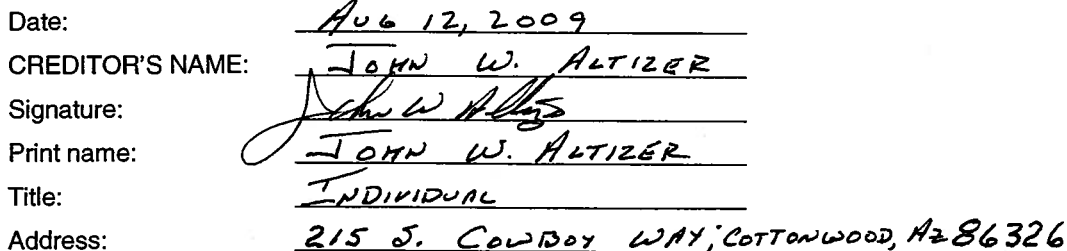 Date: AUG 12, 2009
CREDITOR'S NAME: JOHN W. ALTIZER
Signature: John W Altizer
Print name: JOHN W. ALTIZER
Title: INDIVIDUAL
Address: 215 S. COWBOY WAY; COTTONWOOD, AZ 86326